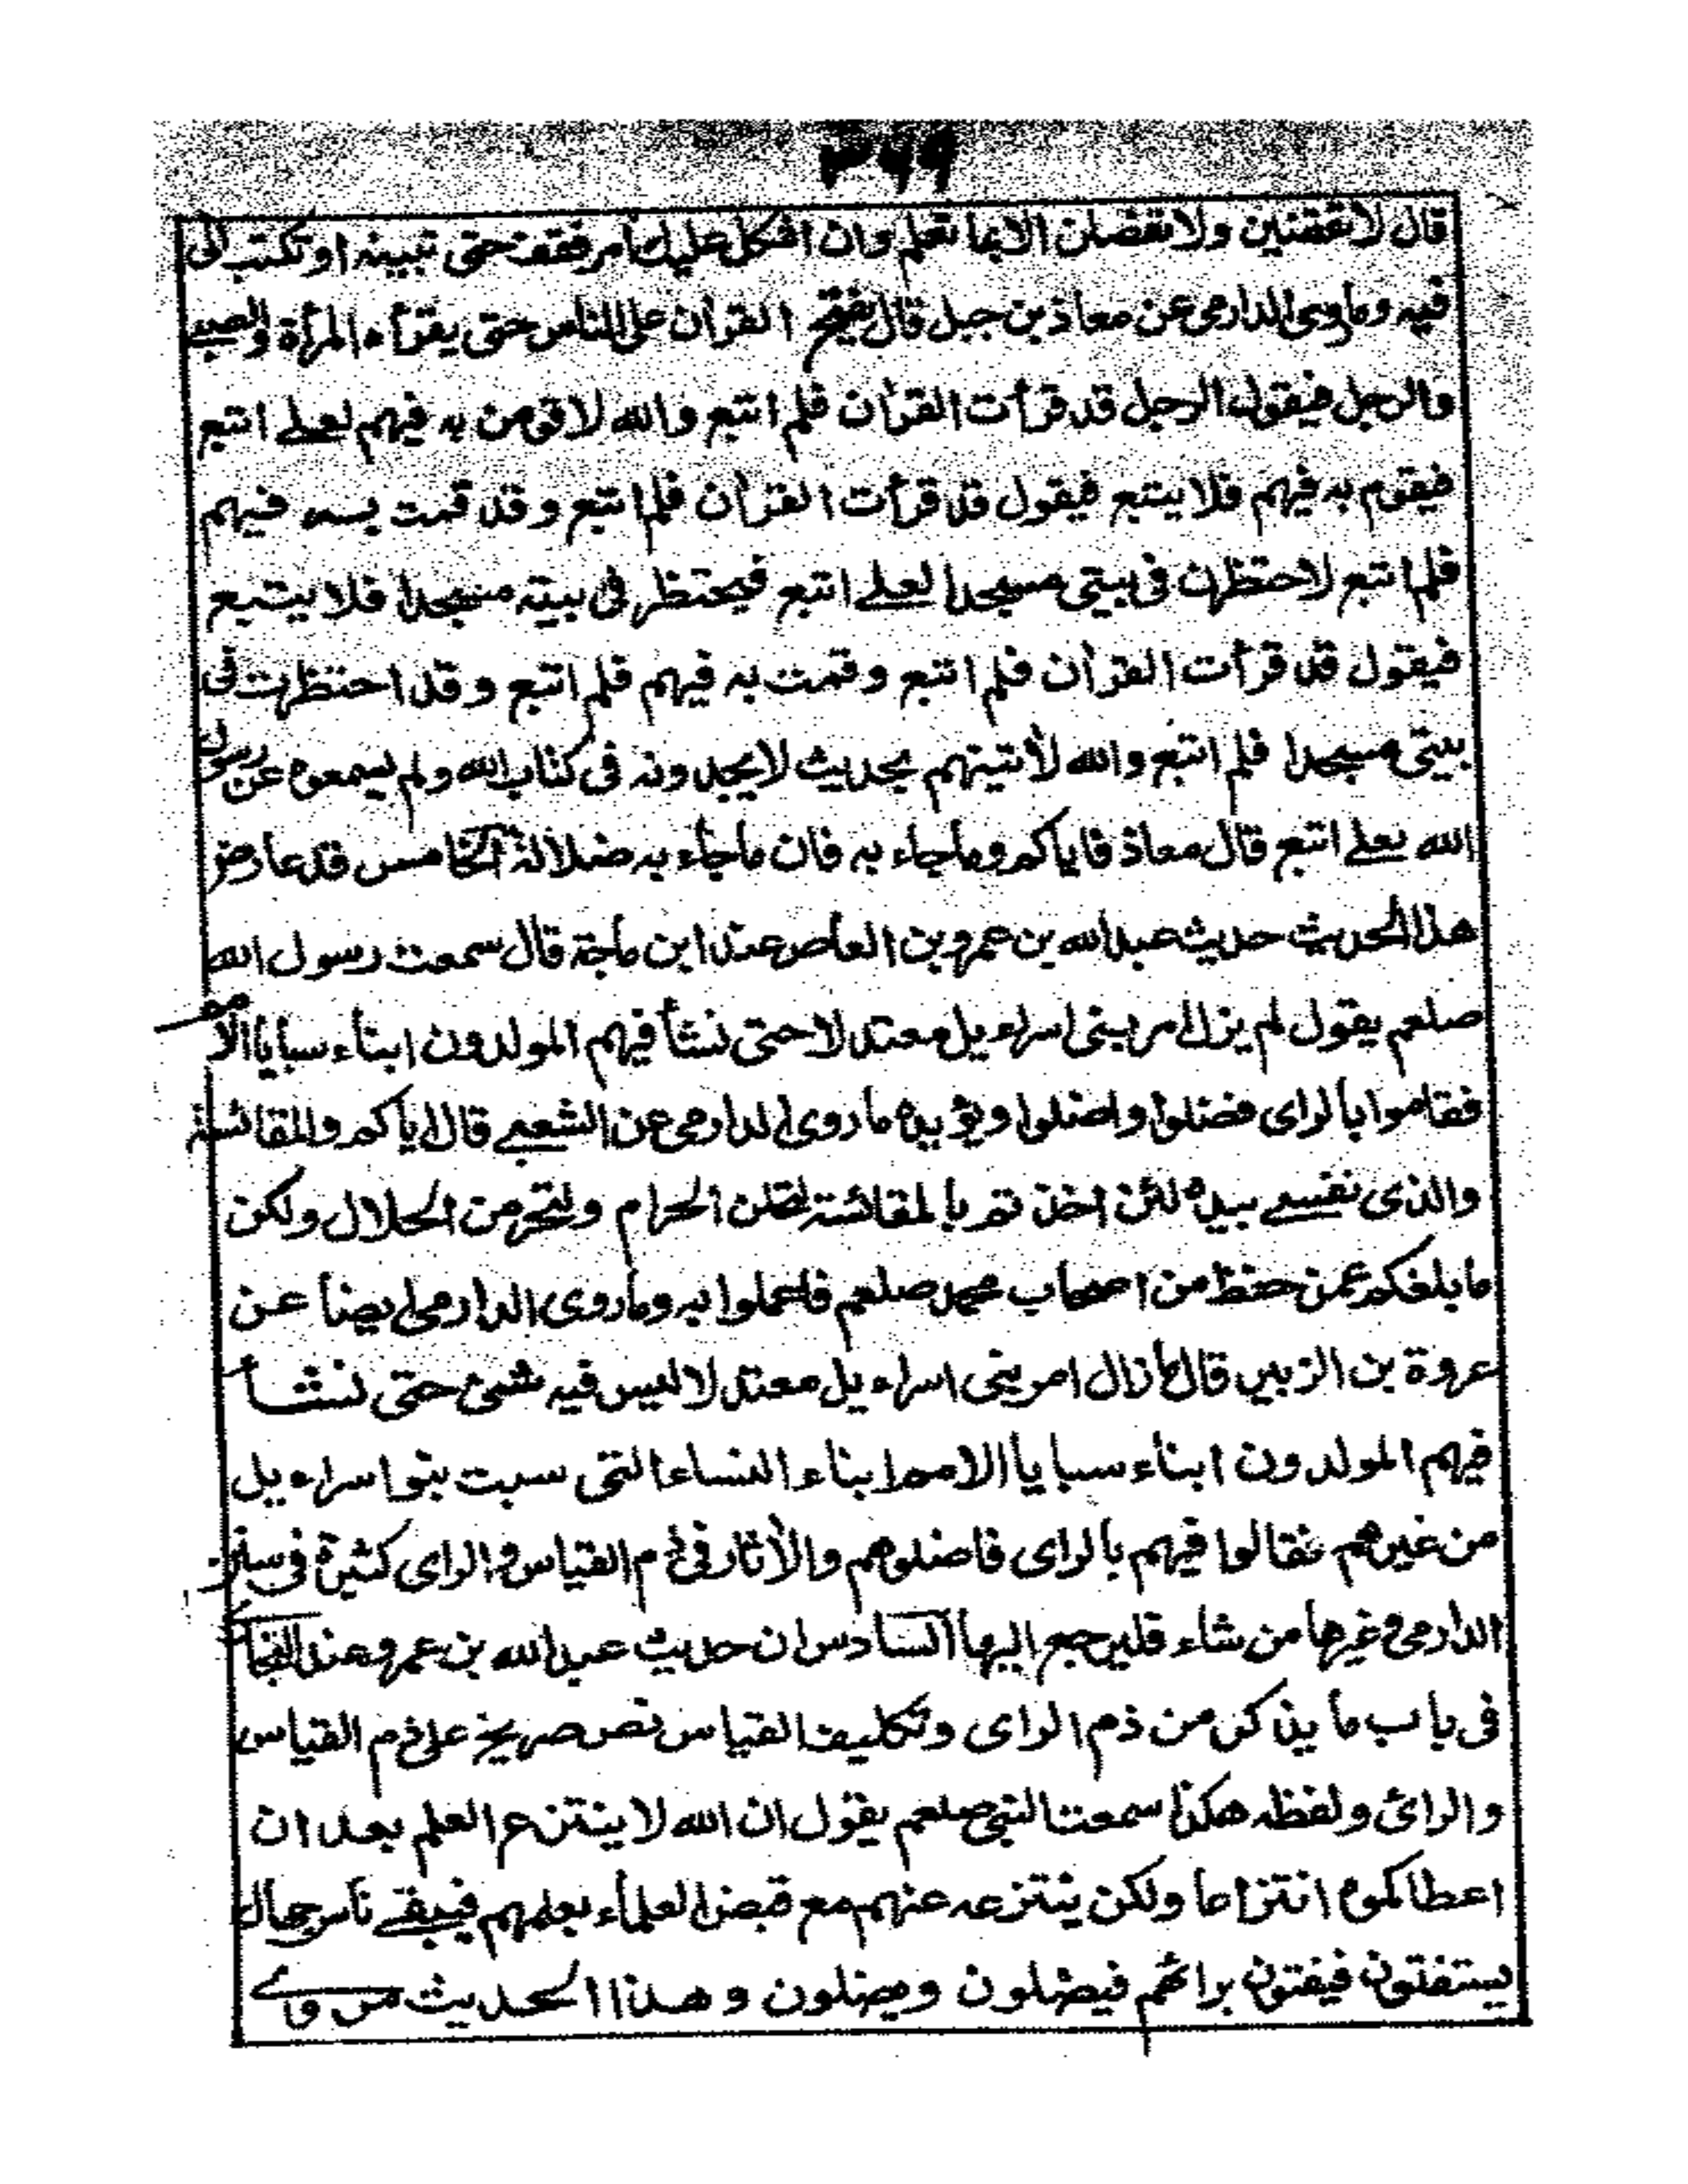 ٣٩٩
قال لا تقضين ولا تفضلن الا بما تعلم وان اشكل عليك امر فقف حتى تبينه او تكتب الى
فيه وماروى الدارمى عن معاذ بن جبل قال يفتح القرأن على الناس حتى يقرأه المرأة والصبى
والرجل فيقول الرجل قد قرأت القرأن فلم اتبع والله لاقومن به فيهم لعلے اتبع
فيقوم به فيهم فلا يتبع فيقول قد قرأت القرأن فلم اتبع وقد قمت به فيهم
فلم اتبع لاحتظرن فى بيتى مسجدا لعلے اتبع فيحتظر فى بيته مسجدا فلا يتبع
فيقول قد قرأت القرأن فلم اتبع وقمت به فيهم فلم اتبع وقد احتظرت فى
بيتى مسجدا فلم اتبع والله لأتينهم بحديث لا يجدونه فى كتاب الله ولم يسمعوه عن رسول
الله لعلے اتبع قال معاذ فاياكم وماجاء به فان ماجاء به ضلالة الخامس قد عارض
هذا الحديث حديث عبد الله بن عمرو بن العاص عند ابن ماجة قال سمعت رسول الله
صلعم يقول لم يزل امر بنى اسراءيل معتدلا حتى نشأ فيهم المولدون ابناء سبايا الامم
فقاموا بالراى فضلوا واضلوا ويؤيده ماروى الدارمى عن الشعبے قال اياكم والمقائسة
والذى نفسے بيده لئن اخذتم بالمقائسة لتحلن الحرام ولتحرمن الحلال ولكن
ما بلغكم عمن حفظ من اصحاب محمد صلعم فاعملوا به وماروى الدارمى ايضا عن
عروة بن الزبير قال مازال امر بنى اسراءيل معتدلا ليس فيه شئ حتى نشأ
فيهم المولدون ابناء سبايا الامم ابناء النساء التى سبت بنوا سراءيل
من غيرهم فقالوا فيهم بالراى فاضلوهم والأثار فى ذم القياس والراى كثيرة فى سنن
الدارمى وغيرها من شاء فليرجع اليها السادس ان حديث عبد الله بن عمرو عند البخارى
فى باب ما يذكر من ذم الراى وتكليف القياس نص صريح على ذم القياس
والرائ ولفظه هكذا سمعت النبى صلعم يقول ان الله لا ينتزع العلم بعد ان
اعطاكموه انتزاعا ولكن ينتزعه عنهم مع قبض العلماء بعلمهم فيبقے ناس جهال
يستفتون فيفتون برائهم فيضلون ويضلون وهذا الحديث مروے